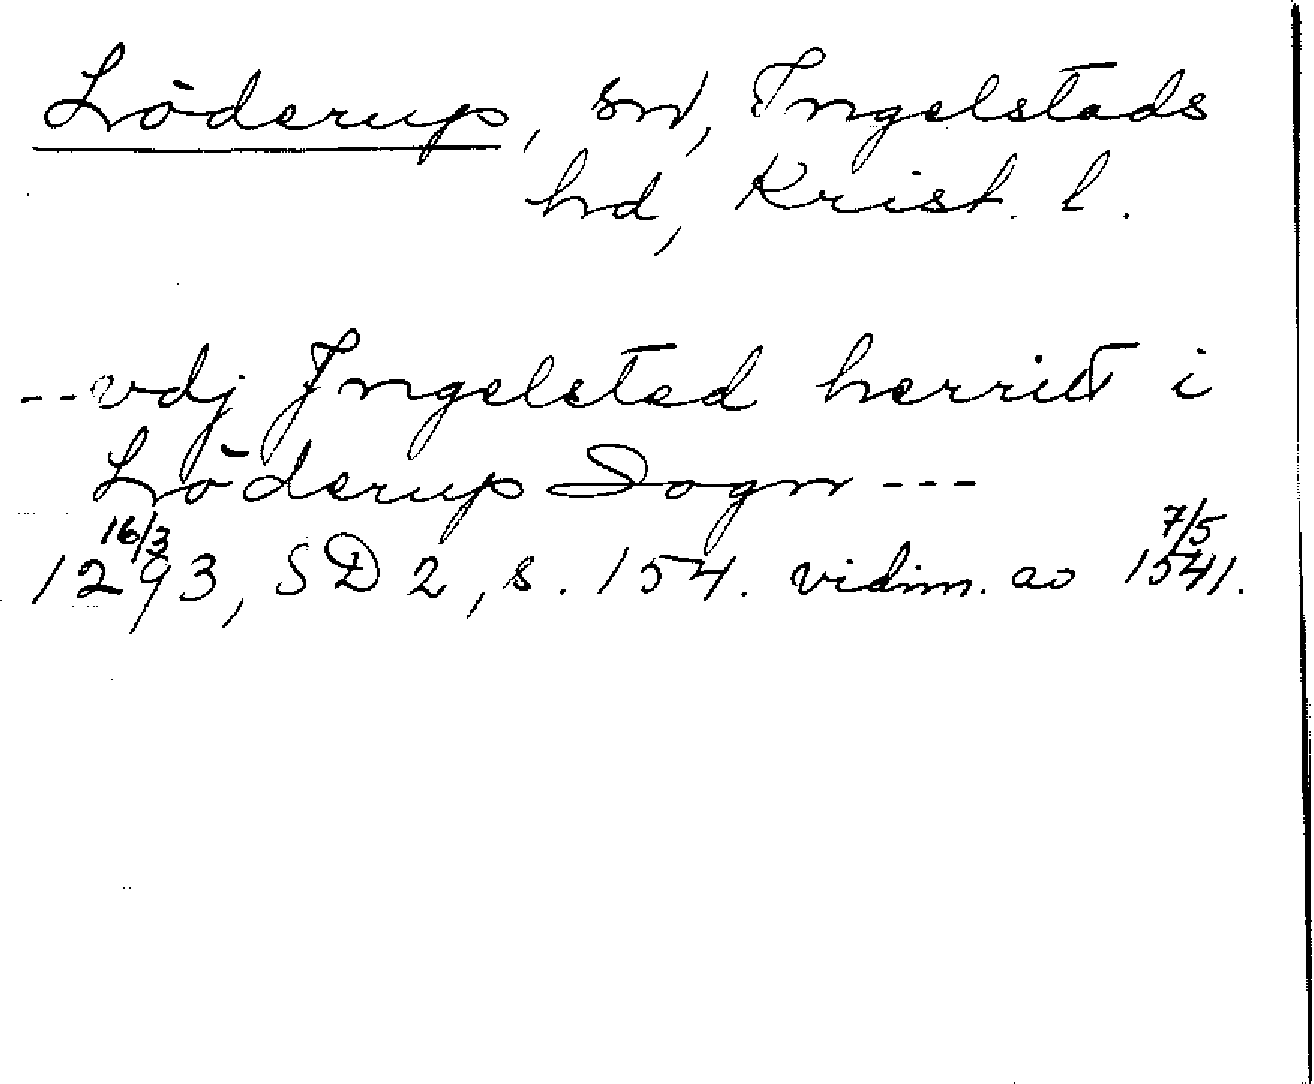 Löderup, sn, Ingelstads
hd, Krist. l.
--vdj Ingelsted herrit i
Löderup Sogn ---
16/3 7/5
1293, SD 2, s. 154. vidim. av 1541.